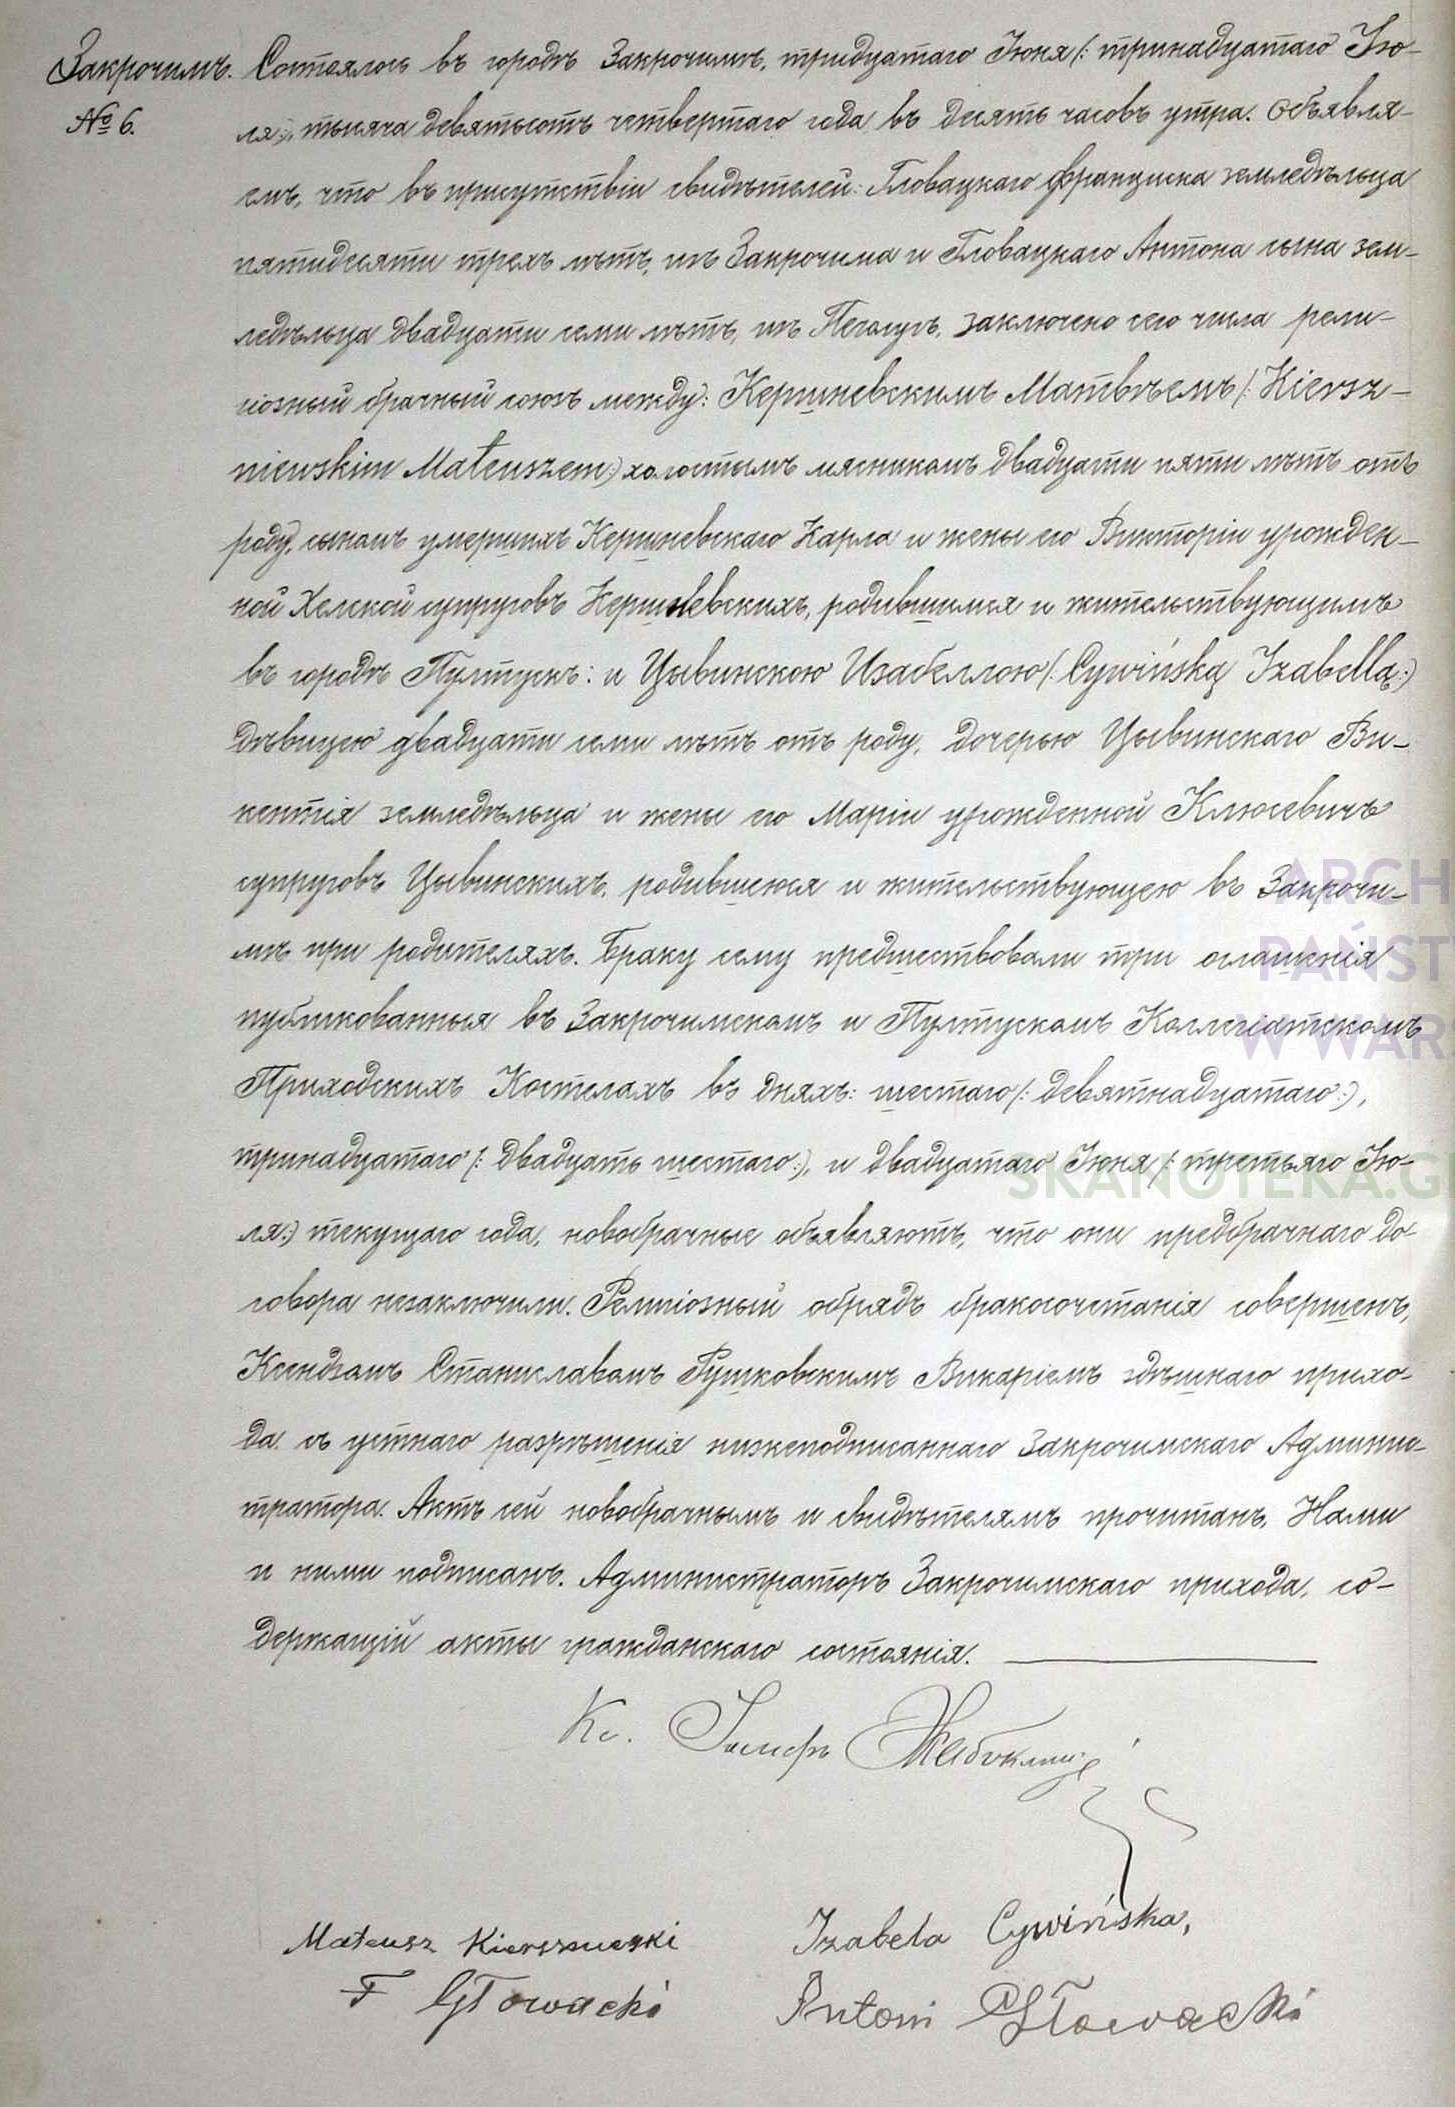 Закрочимъ.
№ 6.
Состоялось въ городѣ Закрочимѣ, тридцатаго Іюня /: тринадцатаго Ію-
ля:/ тысяча девятьсотъ четвертаго года въ десять часовъ утра. Объявля-
емъ, что въ присутствіи свидѣтелей: Гловацкаго Франциска земледѣльца
пятидесяти трехъ лѣтъ, изъ Закрочима и Гловацкаго Антона сына зем-
ледѣльца двадцати семи лѣтъ, изъ заключено сего числа рели-
гіозный брачный союзъ между: Кершневскимъ Матвѣемъ /: Kiersz-
niewskim Mateuszem:/ холостымъ мясникомъ двадцати пяти лѣтъ отъ
роду, сыномъ умершихъ Кершневскаго Карла и жены его Викторіи урожден-
ной Хелской супруговъ Кершневскихъ, родившимся и жительствующимъ
въ городѣ Пултускѣ: и Цывинскою Изабеллою /: Cywińską Izabellą:/
дѣвицею двадцати семи лѣтъ отъ роду, дочерью Цывинскаго Ви-
кентія земледѣльца и жены его Маріи урожденной Клюсевичъ
супруговъ Цывинскихъ, родившеюся и жительствующею въ Закрочи-
мѣ при родителяхъ. Браку сему предшествовали три оглашенія
публикованныя въ Закрочимскомъ и Пултускомъ Коллегіатскомъ
Приходскихъ Костелахъ въ дняхъ: шестаго /: девятнадцатаго:/,
тринадцатаго /: двадцать шестаго:/, и двадцатаго Іюня /: третьяго Ію-
ля:/ текущаго года, новобрачные объявляютъ, что они предбрачнаго до-
говора незаключили. Религіозный обрядъ бракосочетанія совершенъ,
Ксендзомъ Станиславомъ Рушковскимъ Викаріемъ здѣшнаго прихо-
да съ устнаго разрѣшенія нижеподписаннаго Закрочимскаго Админис-
тратора. Актъ сей новобрачнымъ и свидѣтелямъ прочитанъ, Нами
и ними подписанъ. Администраторъ Закрочимскаго прихода, со-
держащій акты гражданскаго состоянія.
Кс. Іосифъ
Mateusz Kierszniewski
Izabela Cywińska,
F Głowacki
Antoni Głowacki
ARCH
PAŃST
W WAR
SKANOTEKA.G